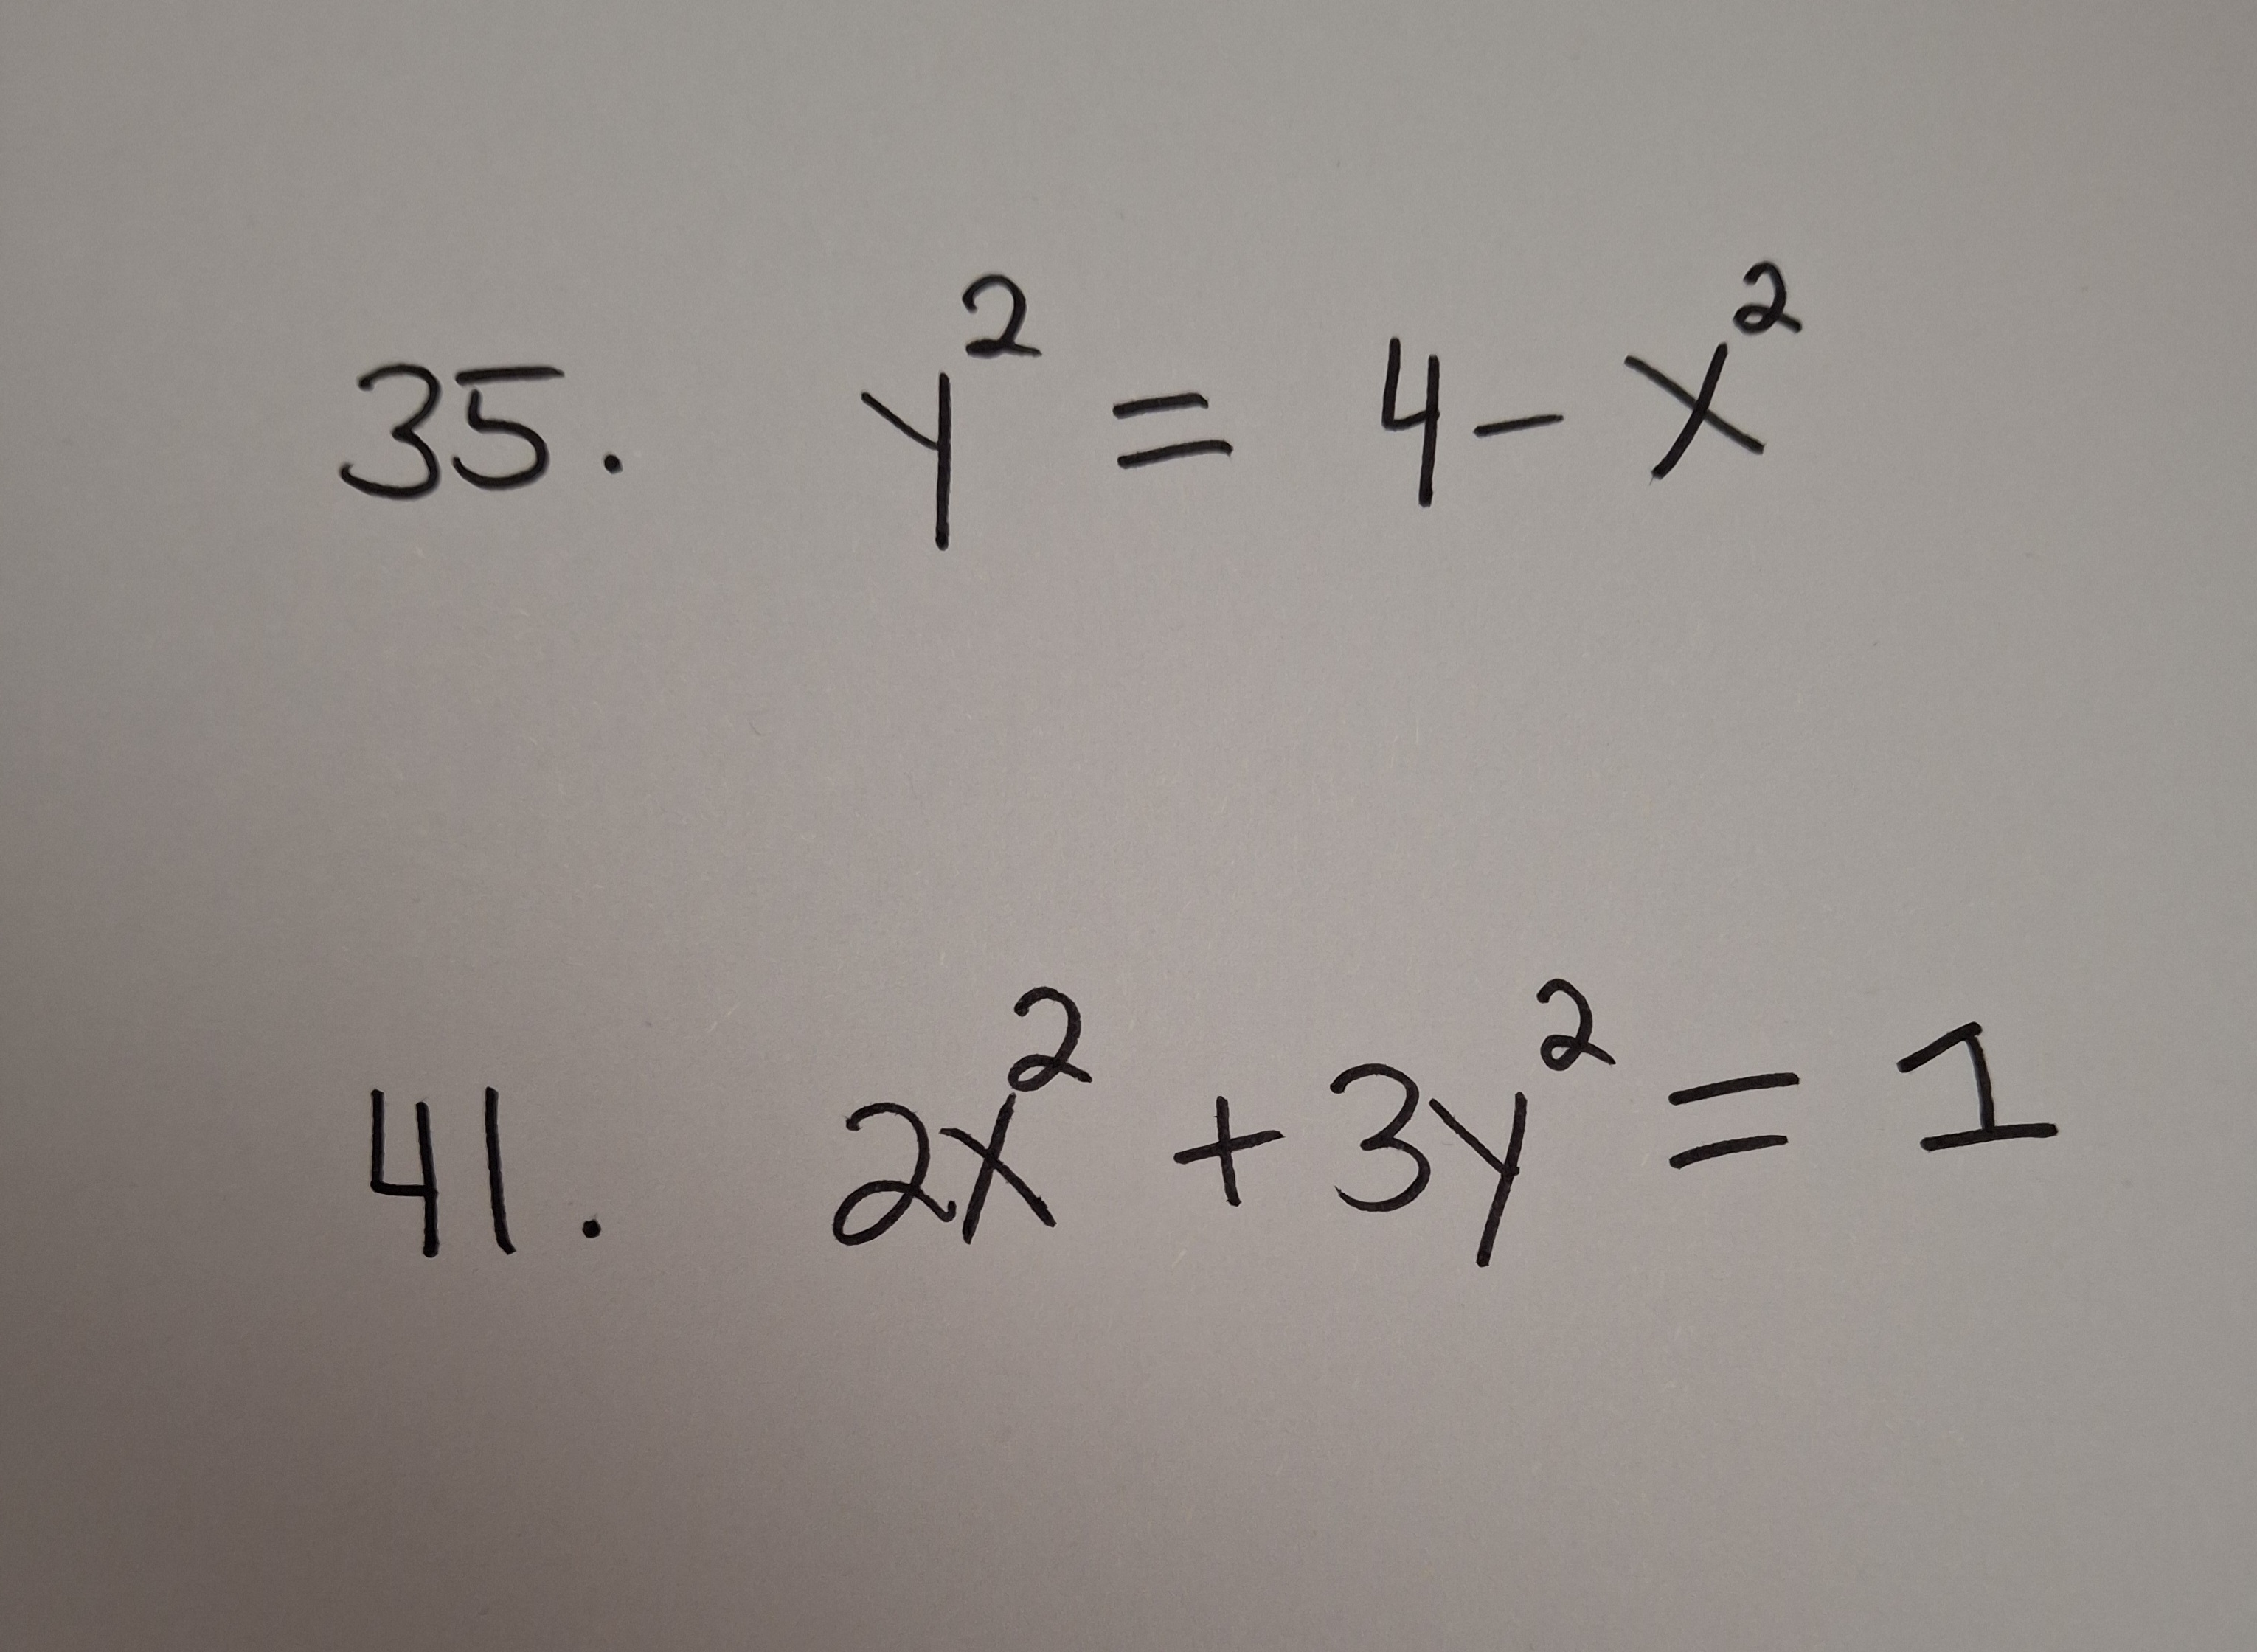 35. y² = 4 - x²
41. 2x² + 3y² = 1